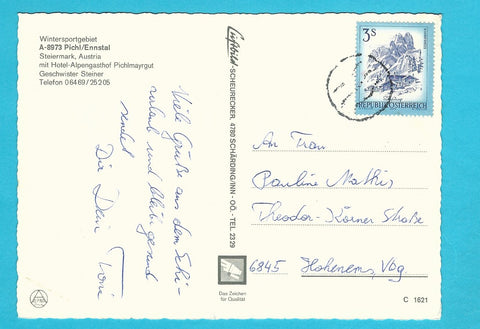 Wintersportgebiet
A-8973 Pichl/Ennstal
Steiermark, Austria
mit Hotel-Alpengasthof Pichlmayrgut
Geschwister Steiner
Telefon 06469/25205
Viele Grüße aus dem Schi-
urlaub und bleib gesund
sendet
Die Dein Toni
Luftbild-SCHEURECKER, 4780 SCHÄRDING/INN - OÖ. - TEL. 2329
3S
REPUBLIK ÖSTERREICH
An Frau
Pauline Mathis
Theodor-Körner Straße
6845 Hohenems, Vbg.
Das Zeichen
für Qualität
C 1621